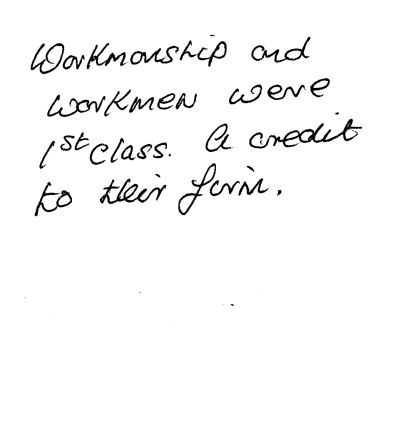 Workmanship and
workmen were
1st class. A credit
to their firm.